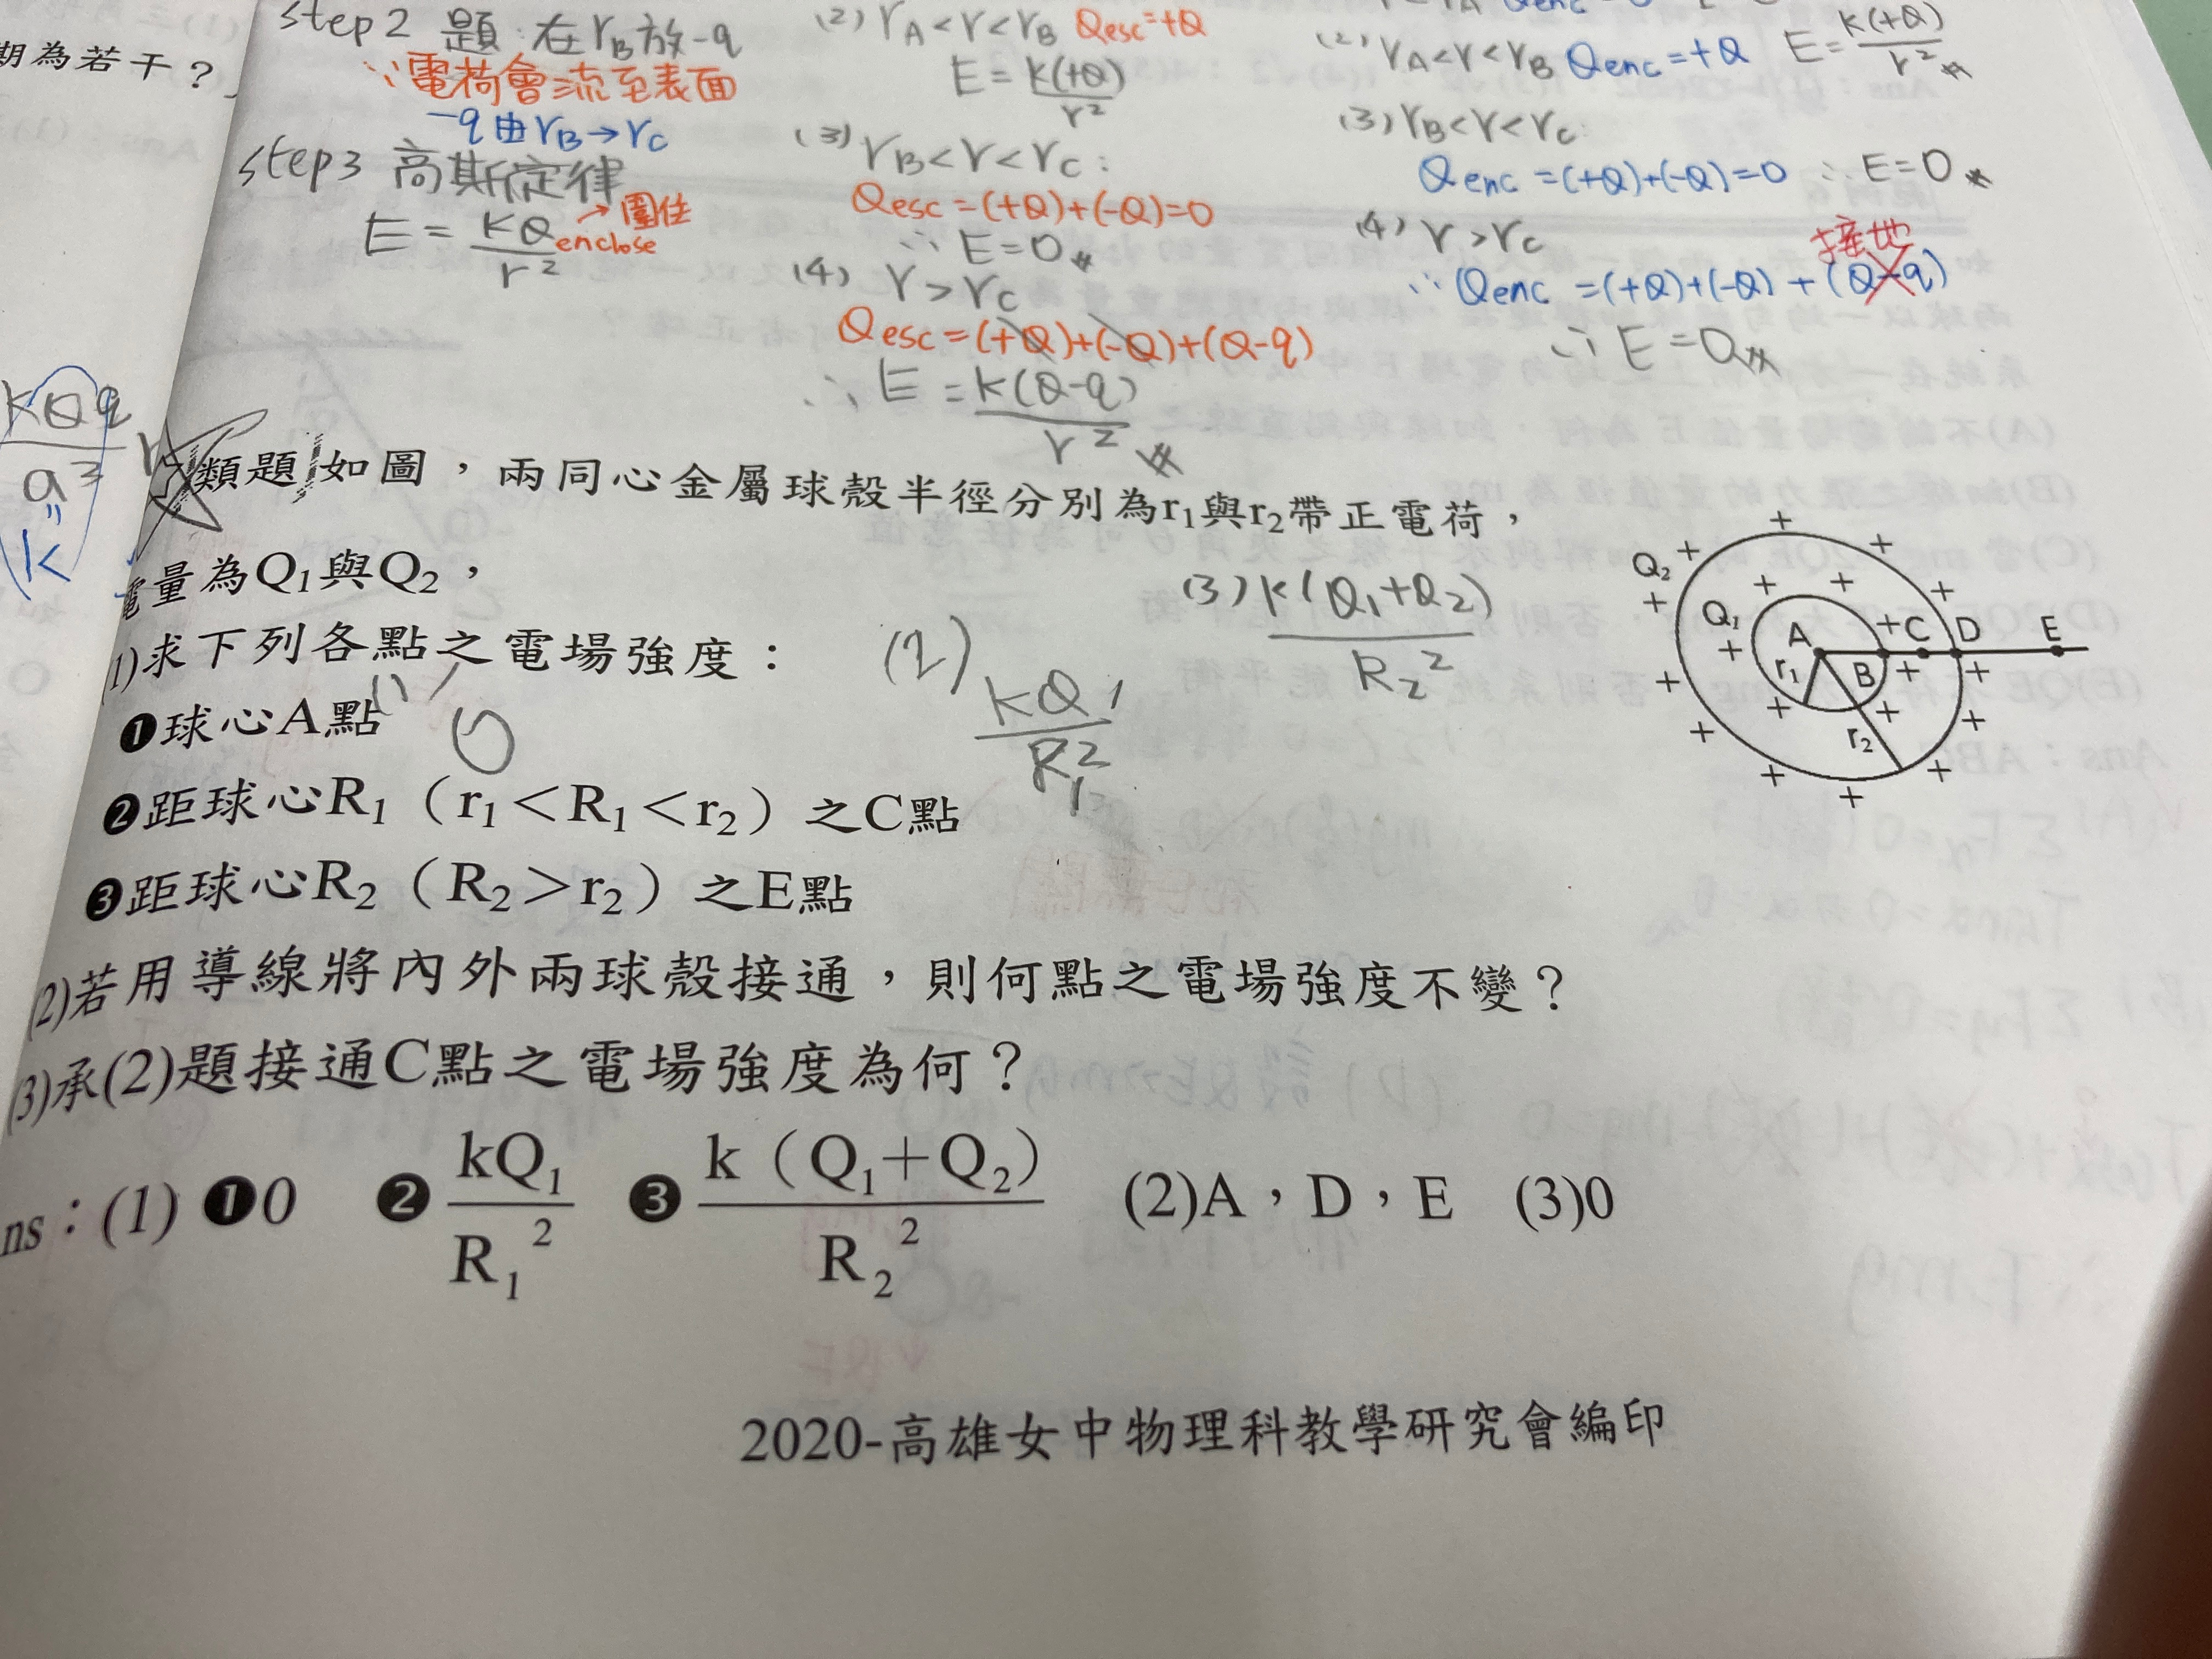 期為若干？
step2 題：在rB放-q
∵電荷會流至表面
-q由rB→rC
step3 高斯定律
E=kQenclose/r² →圍住
(2) rA<r<rB Qesc=+Q
E=k(+Q)/r²
(3) rB<r<rC：
Qesc=(+Q)+(-Q)=0
∴E=0
(4) r>rC
Qesc=(+Q)+(-Q)+(Q-q)
∴E=k(Q-q)/r²
(2) rA<r<rB Qenc=+Q E=k(+Q)/r²
(3) rB<r<rC：
Qenc=(+Q)+(-Q)=0 ∴E=0
(4) r>rC 接地
∵Qenc=(+Q)+(-Q)+(Q-q)
∴E=0
kQq/a³ r
"
k
類題 如圖，兩同心金屬球殼半徑分別為r₁與r₂帶正電荷，
電量為Q₁與Q₂，
(1)求下列各點之電場強度：
❶球心A點 (1) 0
❷距球心R₁（r₁<R₁<r₂）之C點
❸距球心R₂（R₂>r₂）之E點
(2) kQ₁/R₁²
(3) k(Q₁+Q₂)/R₂²
Q₂
Q₁
A
+C D E
r₁ B
r₂
(2)若用導線將內外兩球殼接通，則何點之電場強度不變？
(3)承(2)題接通C點之電場強度為何？
ns：(1) ❶0 ❷ kQ₁/R₁² ❸ k（Q₁+Q₂）/R₂² (2)A，D，E (3)0
2020-高雄女中物理科教學研究會編印